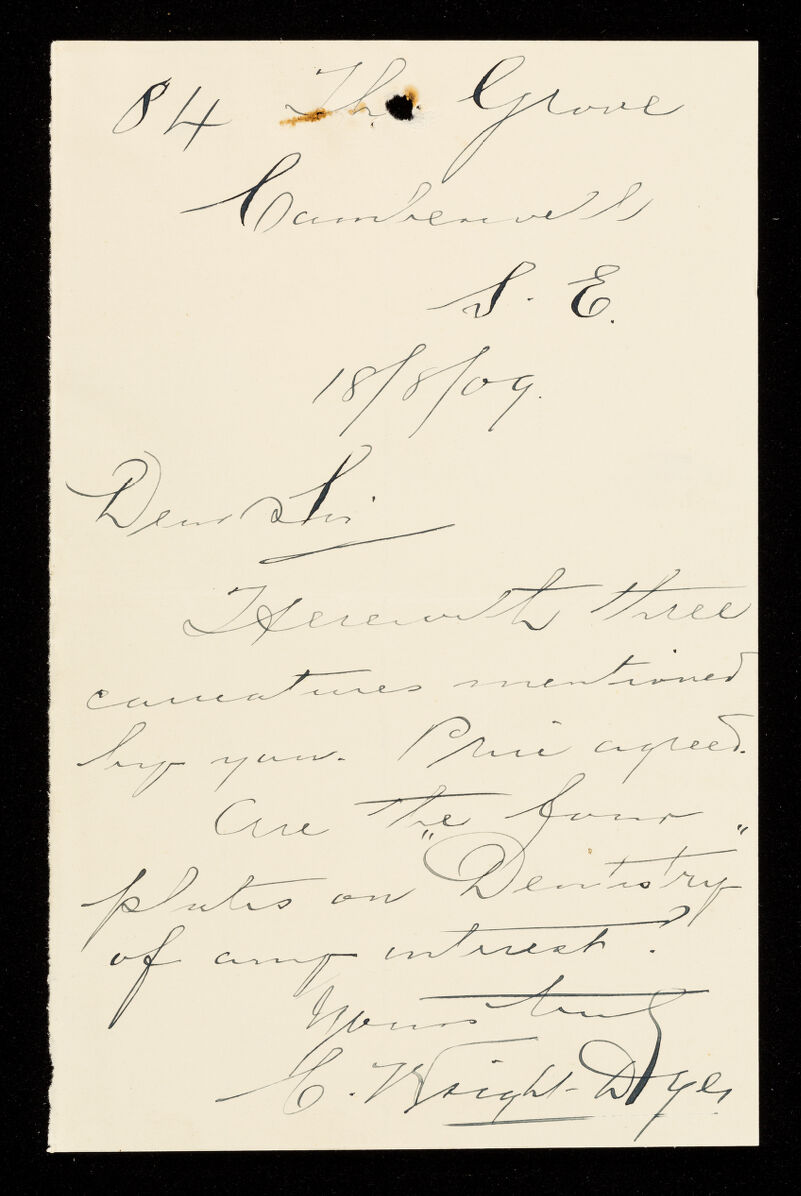 84 The Grove
Camberwell
S. E.
18/8/09.
Dear Sir
Herewith three
caricatures mentioned
by you. Price agreed.
Are the four
plates on "Dentistry"
of any interest?
Yours truly
C. Wright-Dyer